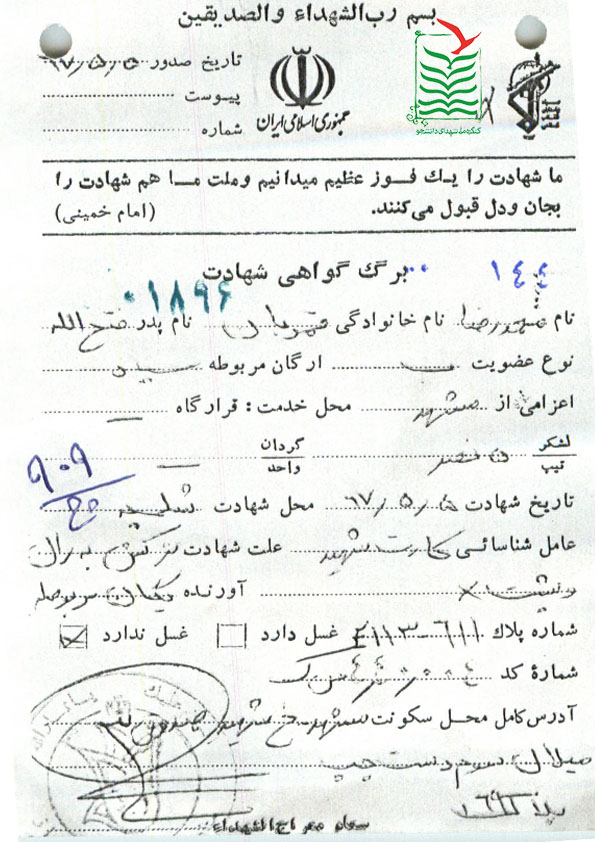 بسم رب الشهداء والصدیقین
تاریخ صدور ۶۷/۵/۵
پیوست
شماره
جمهوری اسلامی ایران
کنگره ملی شهدای دانشجو
ما شهادت را یک فوز عظیم میدانیم وملت ما هم شهادت را
بجان ودل قبول می‌کنند. (امام خمینی)
برگ گواهی شهادت
۱۴۴
۰۱۸۹۶
نام محمدرضا نام خانوادگی قربان نام پدر فتح الله
نوع عضویت ارگان مربوطه
اعزامی از مشهد محل خدمت: قرارگاه
لشکر
تیپ ۵ نصر گردان
واحد
۹۰۹
تاریخ شهادت ۶۷/۵/۵ محل شهادت شلمچه
عامل شناسائی کارت شهید علت شهادت ترکش به ران
آورنده یگان مربوطه
شماره پلاک غسل دارد غسل ندارد
شمارهٔ کد
آدرس کامل محل سکونت مشهد خ شهید
میلان سوم دست چپ
پلاک
معراج الشهداء